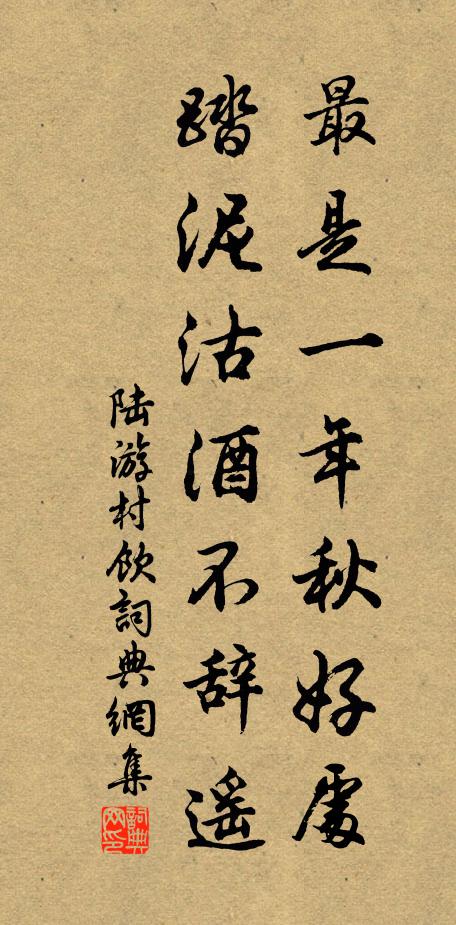 最是一年秋好處
踏泥沽酒不辞遥
陆游村飲詞典網集
詞典网印